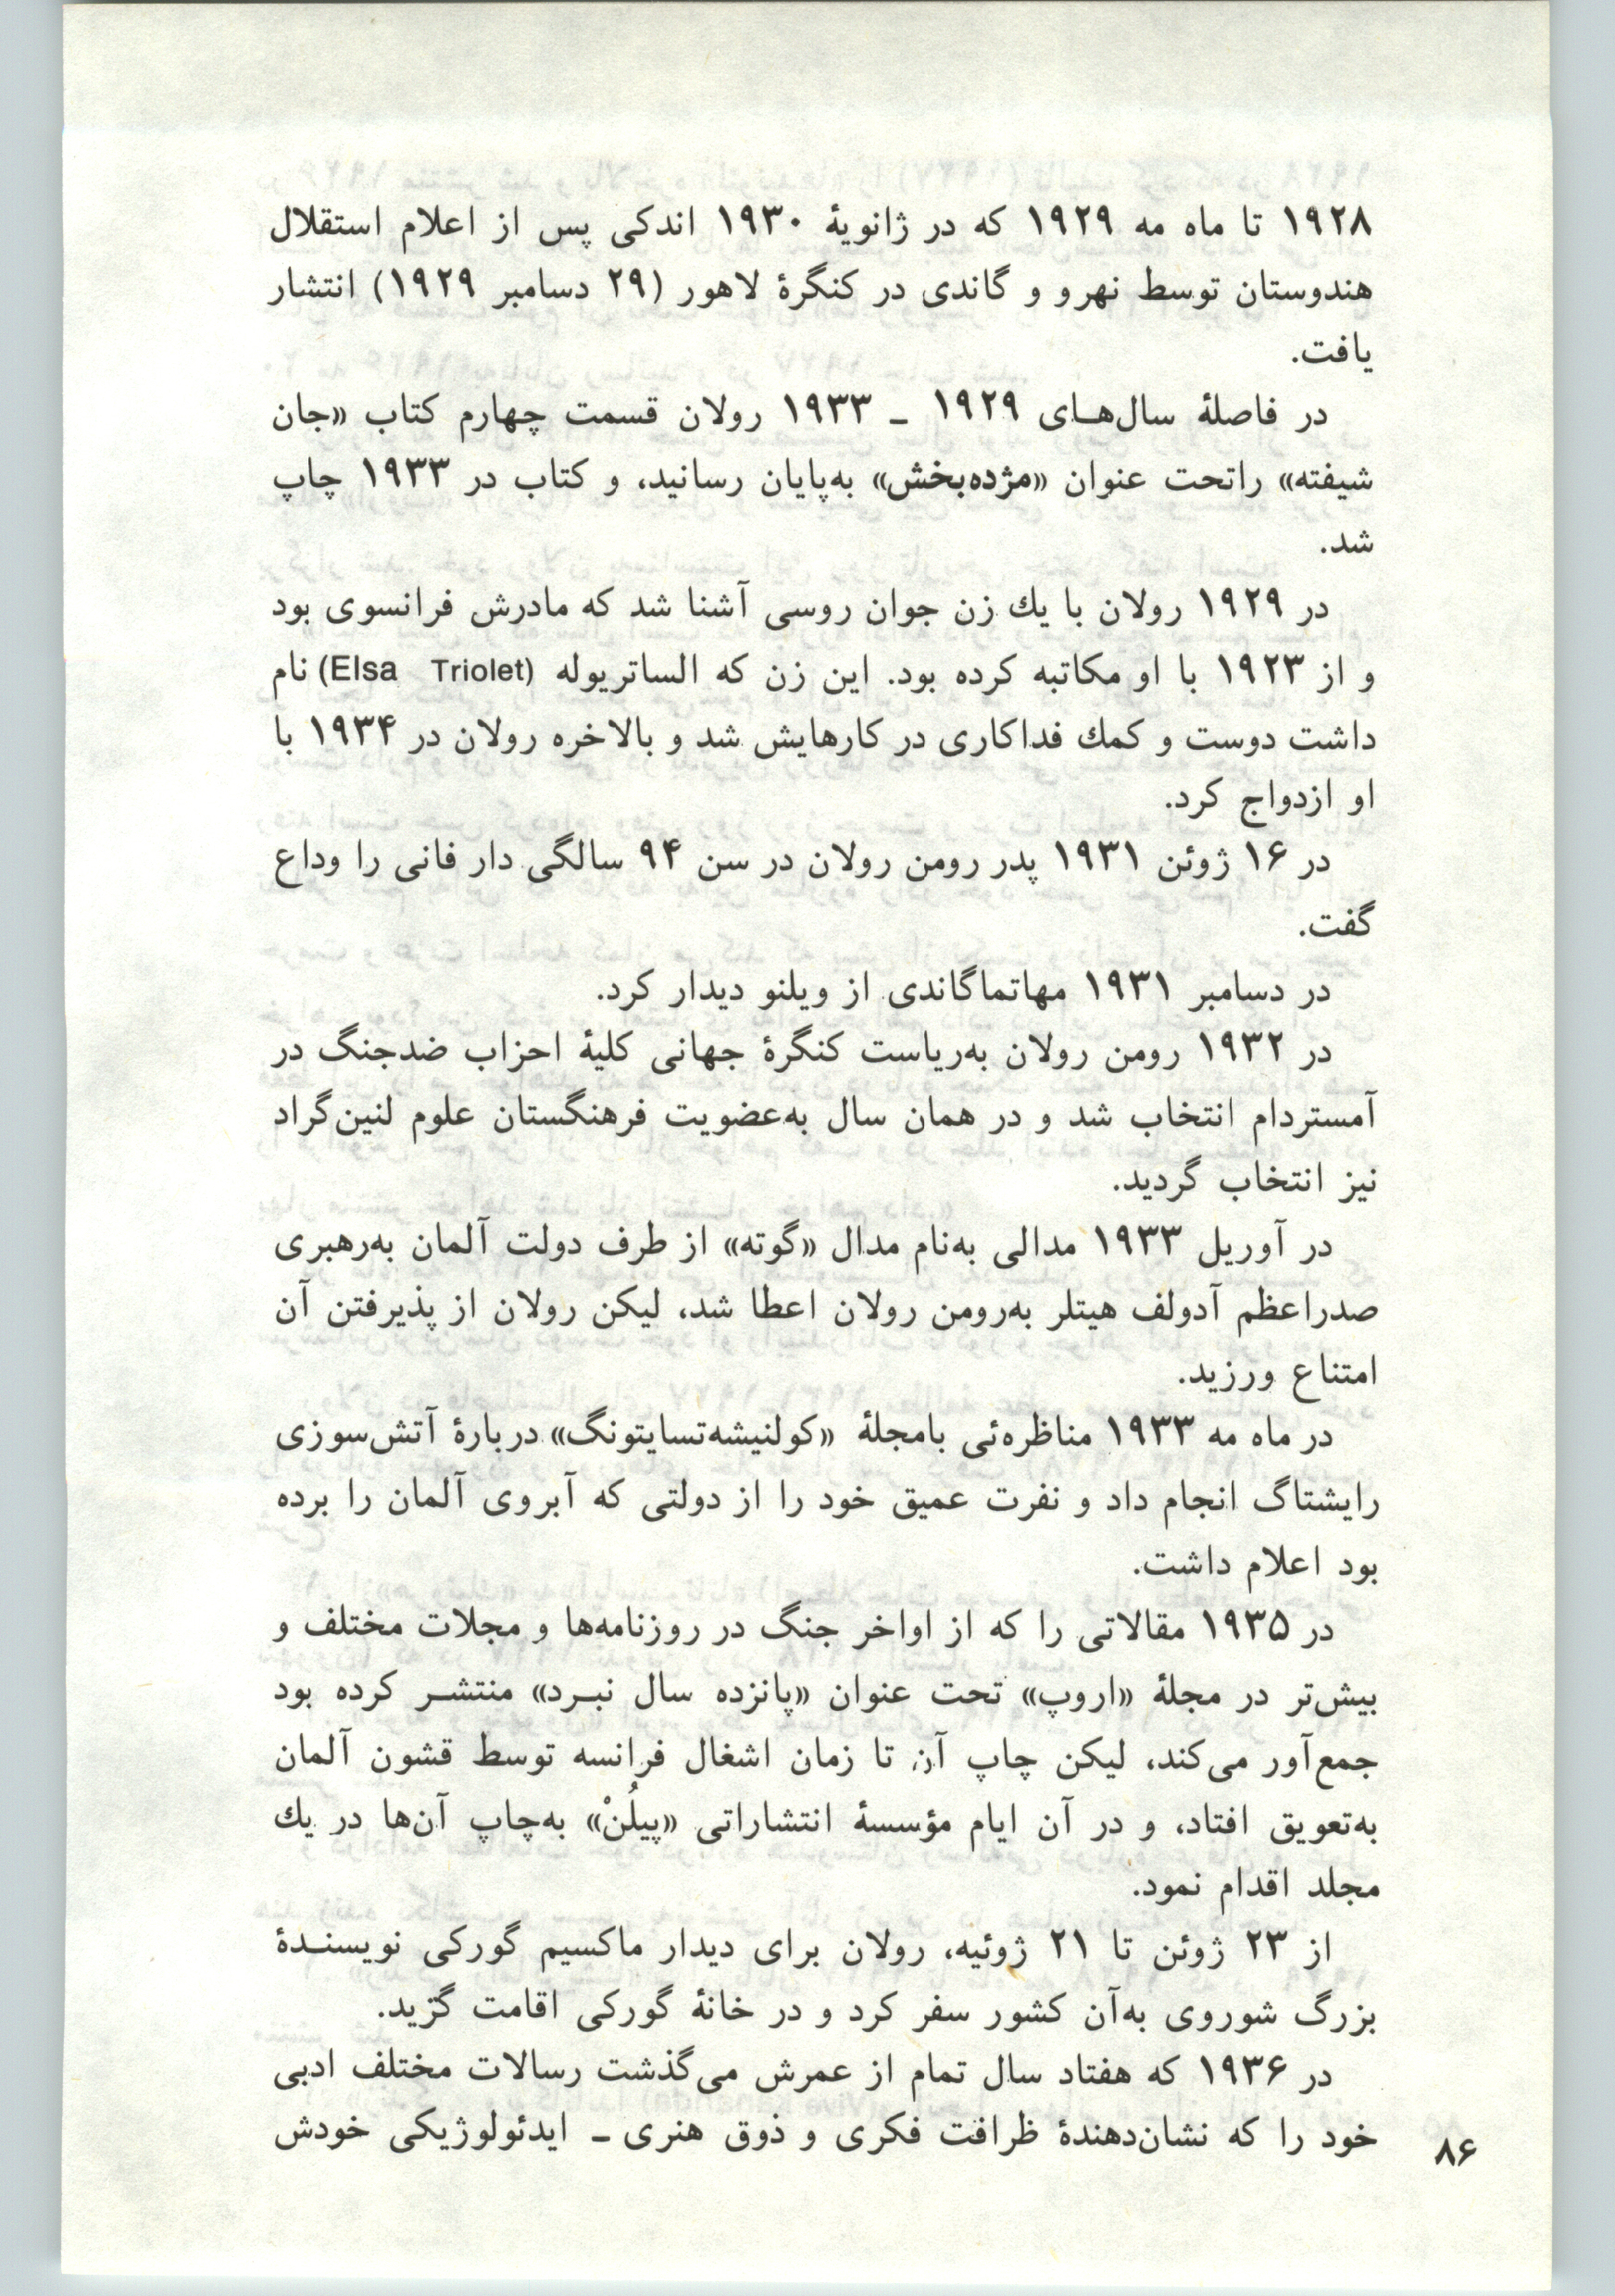 ۱۹۲۸ تا ماه مه ۱۹۲۹ که در ژانویهٔ ۱۹۳۰ اندکی پس از اعلام استقلال
هندوستان توسط نهرو و گاندی در کنگرهٔ لاهور (۲۹ دسامبر ۱۹۲۹) انتشار
یافت.
در فاصلهٔ سال‌هـای ۱۹۲۹ ـ ۱۹۳۳ رولان قسمت چهارم کتاب «جان
شیفته» راتحت عنوان «مژده‌بخش» به‌پایان رسانید، و کتاب در ۱۹۳۳ چاپ
شد.
در ۱۹۲۹ رولان با یك زن جوان روسی آشنا شد که مادرش فرانسوی بود
و از ۱۹۲۳ با او مکاتبه کرده بود. این زن که الساتریوله (Elsa Triolet) نام
داشت دوست و کمك فداکاری در کارهایش شد و بالاخره رولان در ۱۹۳۴ با
او ازدواج کرد.
در ۱۶ ژوئن ۱۹۳۱ پدر رومن رولان در سن ۹۴ سالگی دار فانی را وداع
گفت.
در دسامبر ۱۹۳۱ مهاتماگاندی از ویلنو دیدار کرد.
در ۱۹۳۲ رومن رولان به‌ریاست کنگرهٔ جهانی کلیهٔ احزاب ضدجنگ در
آمستردام انتخاب شد و در همان سال به‌عضویت فرهنگستان علوم لنین‌گراد
نیز انتخاب گردید.
در آوریل ۱۹۳۳ مدالی به‌نام مدال «گوته» از طرف دولت آلمان به‌رهبری
صدراعظم آدولف هیتلر به‌رومن رولان اعطا شد، لیکن رولان از پذیرفتن آن
امتناع ورزید.
در ماه مه ۱۹۳۳ مناظره‌ئی بامجلهٔ «کولنیشه‌تسایتونگ» دربارهٔ آتش‌سوزی
رایشتاگ انجام داد و نفرت عمیق خود را از دولتی که آبروی آلمان را برده
بود اعلام داشت.
در ۱۹۳۵ مقالاتی را که از اواخر جنگ در روزنامه‌ها و مجلات مختلف و
بیش‌تر در مجلهٔ «اروپ» تحت عنوان «پانزده سال نبـرد» منتشـر کرده بود
جمع‌آور می‌کند، لیکن چاپ آن تا زمان اشغال فرانسه توسط قشون آلمان
به‌تعویق افتاد، و در آن ایام مؤسسهٔ انتشاراتی «پیلُنْ» به‌چاپ آن‌ها در یك
مجلد اقدام نمود.
از ۲۳ ژوئن تا ۲۱ ژوئیه، رولان برای دیدار ماکسیم گورکی نویسنـدهٔ
بزرگ شوروی به‌آن کشور سفر کرد و در خانهٔ گورکی اقامت گزید.
در ۱۹۳۶ که هفتاد سال تمام از عمرش می‌گذشت رسالات مختلف ادبی
خود را که نشان‌دهندهٔ ظرافت فکری و ذوق هنری ـ ایدئولوژیکی خودش
۸۶